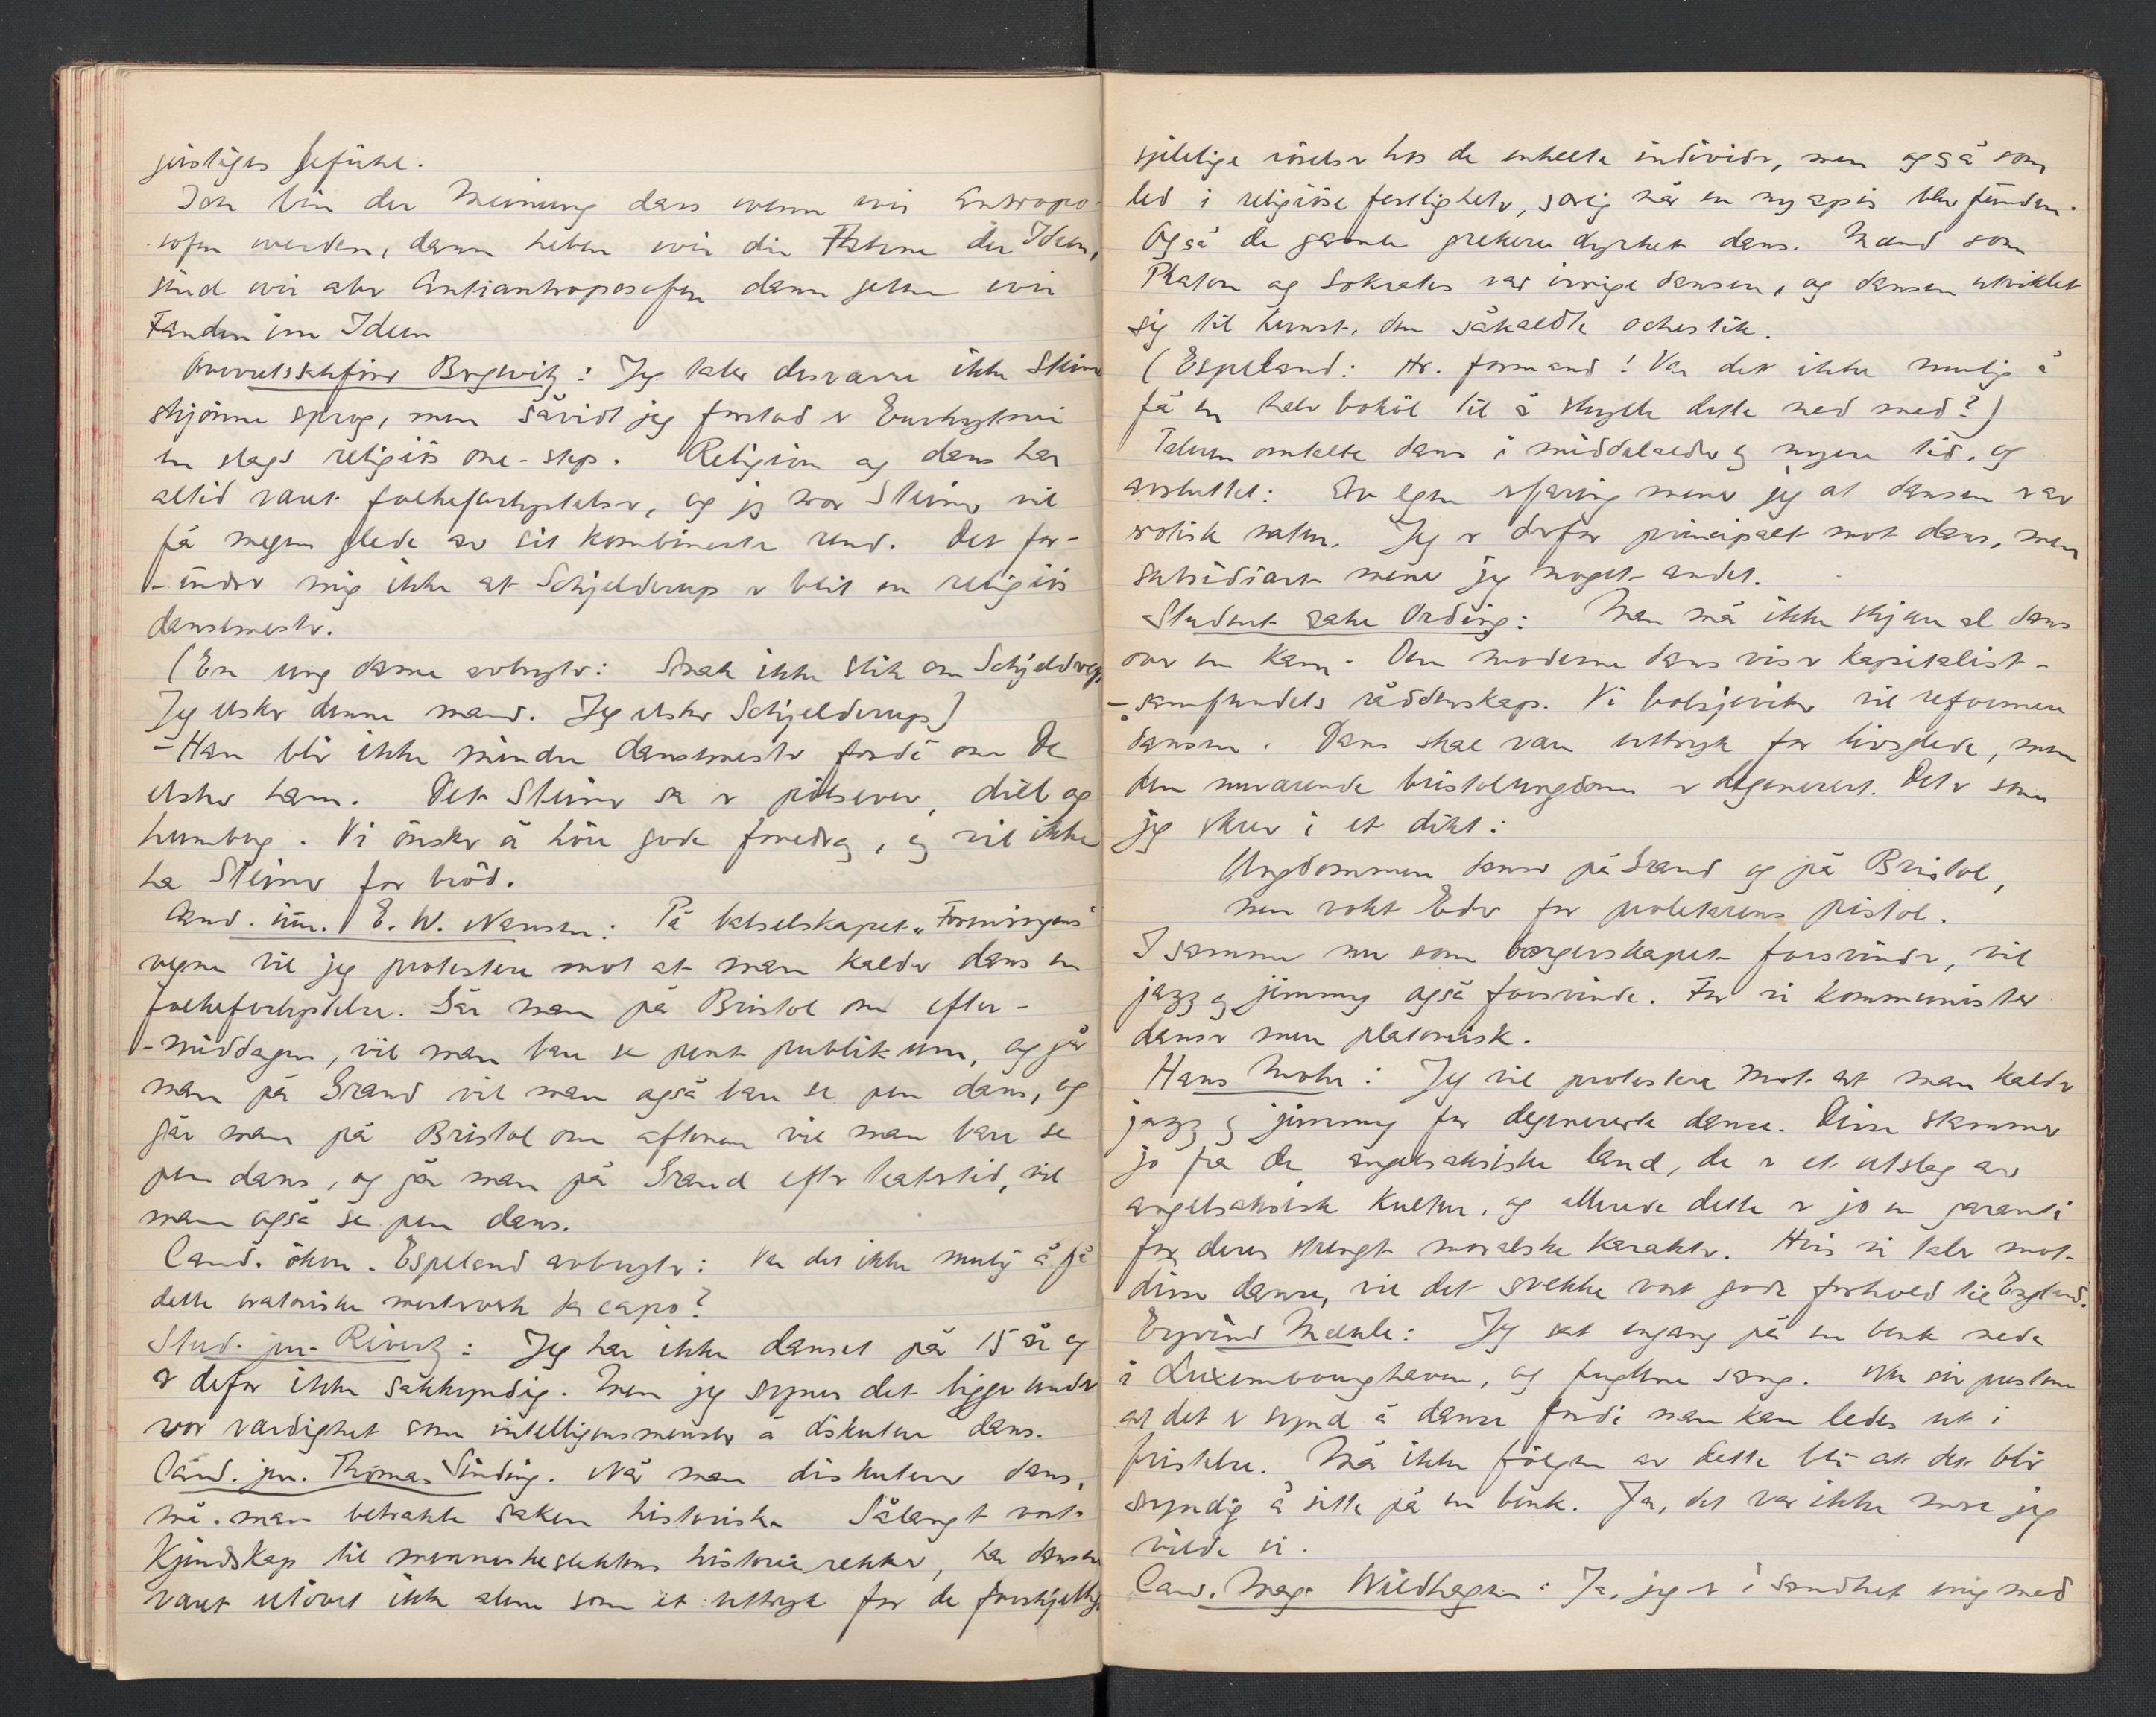 geistiges Gefühl.
Ich bin der Meinung dass wenn wir Antropo-
sofen werden, dann heben wir die Fahne der Ideen,
sind wir aber Antiantroposofen dann gehen wir
Fanden im Ideen
Overretssakfører Bugwitz: Jeg taler desværre ikke Steiners
skjønne sprog, men såvidt jeg forstod er Eurhytmi
en slags religiøs one-step. Religion og dans har
altid været folkeforlystelser, og jeg tror Steiner vil
få megen glede av sit kombinerte rend. Det for-
-undrer mig ikke at Schjelderup er blit en religiøs
dansemester.
(En ung dame avbryter: Snak ikke slik om Schjelderup
Jeg elsker denne mand. Jeg elsker Schjelderup)
- Han blir ikke mindre dansemester fordi om De
elsker ham. Det Steiner sa er pølsevev, dill og
humbug. Vi ønsker å høre gode foredrag, og vil ikke
ha Steiner for brød.
Cand. min. E. W. Nansen: På latselskapet „Foreningens"
vegne vil jeg protestere mot at man kalder dans en
folkeforlystelse. Går man på Bristol om efter-
-middagen, vil man bare se pent publikum, og går
man på Grand vil man også bare se pen dans, og
går man på Bristol om aftenen vil man bare se
pen dans, og går man på Grand efter teatertid, vil
man også se pen dans.
Cand. økon. Espeland avbryter: Var det ikke mulig å få
dette oratoriske mesterverk da capo?
Stud. jur. Rivertz: Jeg har ikke danset på 15 år og
er derfor ikke sakkyndig. Men jeg synes det ligger under
vor værdighet som intelligensmennesker å diskutere dans.
Cand. jur. Thomas Sinding. Når man diskuterer dans,
må man betrakte saken historisk. Sålangt vort
Kjendskap til menneskeslektens historie rekker, har dansen
været utøvet ikke alene som et uttryk for de forskjellige
sjelelige rørelser hos de enkelte individer, men også som
led i religiøse festligheter, særlig når en ny apis blev funden.
Også de gamle grekere dyrket dans. Mænd som
Platon og Sokrates var ivrige dansere, og dansen utviklet
sig til kunst, den såkaldte ochestik.
(Espeland: Hr. formand! Var det ikke mulig å
få en halv bokøl til å skylle dette ned med?)
Taleren omtalte dans i middelalder og nyere tid, og
avsluttet: Av egen erfaring mener jeg at dansen var
erotisk natur. Jeg er derfor principalt mot dans, men
subsidiært mener jeg noget andet.
Student Jahn Ording: Man må ikke skjære al dans
over en kam. Den moderne dans viser kapitalist-
-samfundets råddenskap. Vi bolsjeviker vil reformere
dansen. Dans skal være uttryk for livsglede, men
den nuværende bristolungdom er degenerert. Det er som
jeg skrev i et dikt:
Ungdommen danser på Grand og på Bristol,
men vokt Eder for proletarens pistol.
I samme nu som borgerskapet forsvinder, vil
jazz og jimmy også forsvinde. For vi kommunister
danser mere platonisk.
Hans Mohr: Jeg vil protestere mot at man kalder
jazz og jimmy for degenererte danse. Disse stammer
jo fra de angelsaksiske land, de er et utslag av
angelsaksisk kultur, og allerede dette er jo en garanti
for deres strengt moralske karakter. Hvis vi taler mot
disse danse, vil det svekke vort gode forhold til England.
Eyvind Mæhle: Jeg sat engang på en benk nede
i Luxembourghaven, og fuglene sang. Nu sier prestene
at det er synd å danse fordi man kan ledes ut i
fristelse. Må ikke følgen av dette bli at det blir
syndig å sitte på en benk. Ja, det var ikke mere jeg
vilde si.
Cand. mag. Wildhagen: Ja, jeg er i sandhet enig med